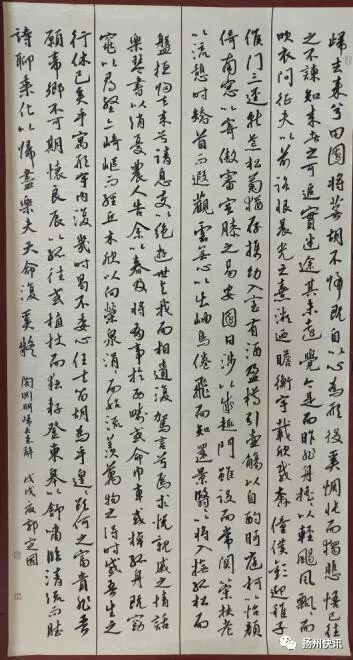 歸去来兮田園将蕪胡不歸既自以心為形役奚惆悵而獨悲悟已往
之不諫知来者之可追實迷途其未遠覺今是而昨非舟摇以輕颺風飄飄而
吹衣问征夫以前路恨晨光之熹微迺瞻衡宇載欣載奔僮僕歡迎稚子
候门三迳就荒松菊猶存携幼入室有酒盈樽引壶觴以自酌眄庭柯以怡颜
倚南窓以寄傲審容膝之易安園日涉以成趣門雖设而常関策扶老
以流憩时矯首而遐觀雲無心以出岫鳥倦飛而知還景翳翳以将入撫孤松而
盤桓歸去来兮请息交以绝遊世與我而相遺復駕言兮焉求悦親戚之情話
樂琴書以消憂農人告余以春及将有事於西畴或命巾車或棹孤舟既窈
窕以尋壑上崎嶇而經丘木欣欣以向榮泉涓涓而始流羡萬物之得时感吾生之
行休已矣乎寓形宇内復幾时曷不委心任去留胡為乎遑遑欲何之富貴非吾
願帝鄉不可期懷良辰以孤往或植杖而耘耔登東皋以舒嘯临清流而賦
詩聊乘化以歸盡樂夫天命復奚疑
陶渊明歸去来辞 戊戌夏郭定国
@扬州快讯